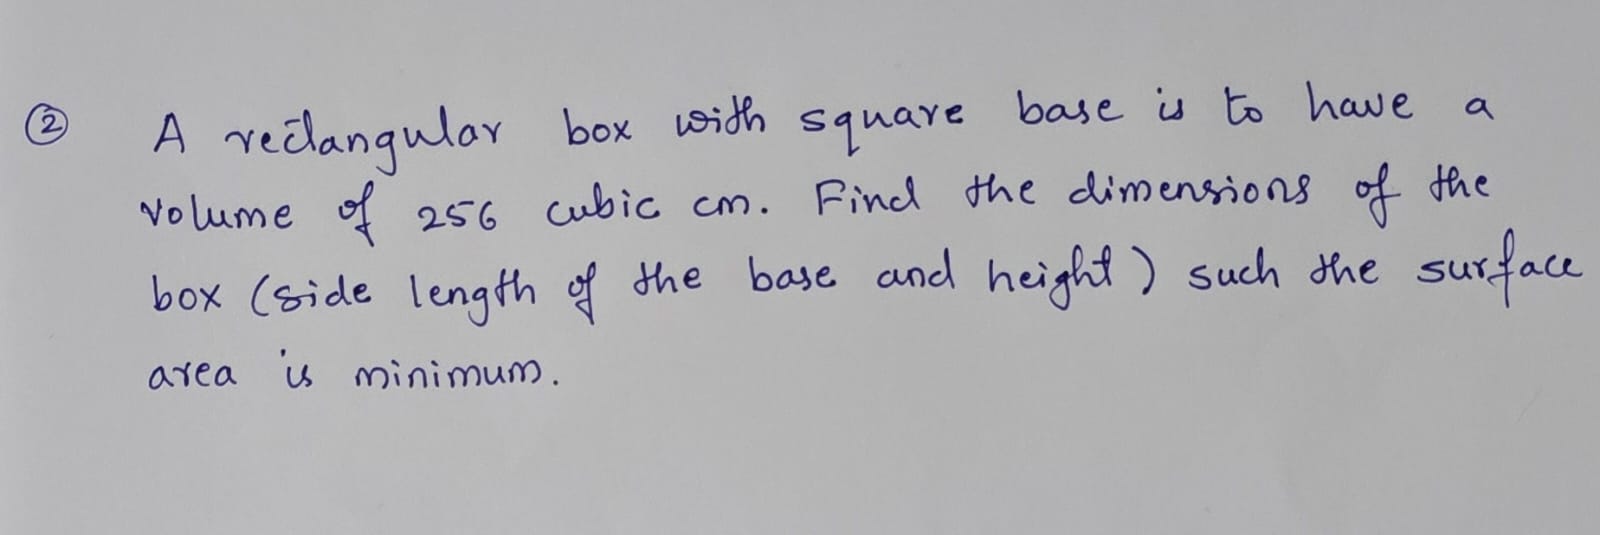 ② A rectangular box with square base is to have a
volume of 256 cubic cm. Find the dimensions of the
box (side length of the base and height) such the surface
area is minimum.